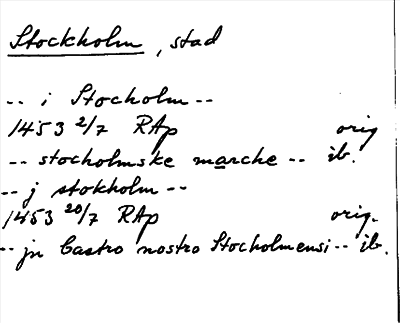 Stockholm, stad
-- i Stocholm --
1453 2/7 RAp orig
-- stocholmske marche -- ib.
-- j stokholm --
1453 20/7 RAp orig.
-- jn Castro nostro Stocholmensi -- ib.